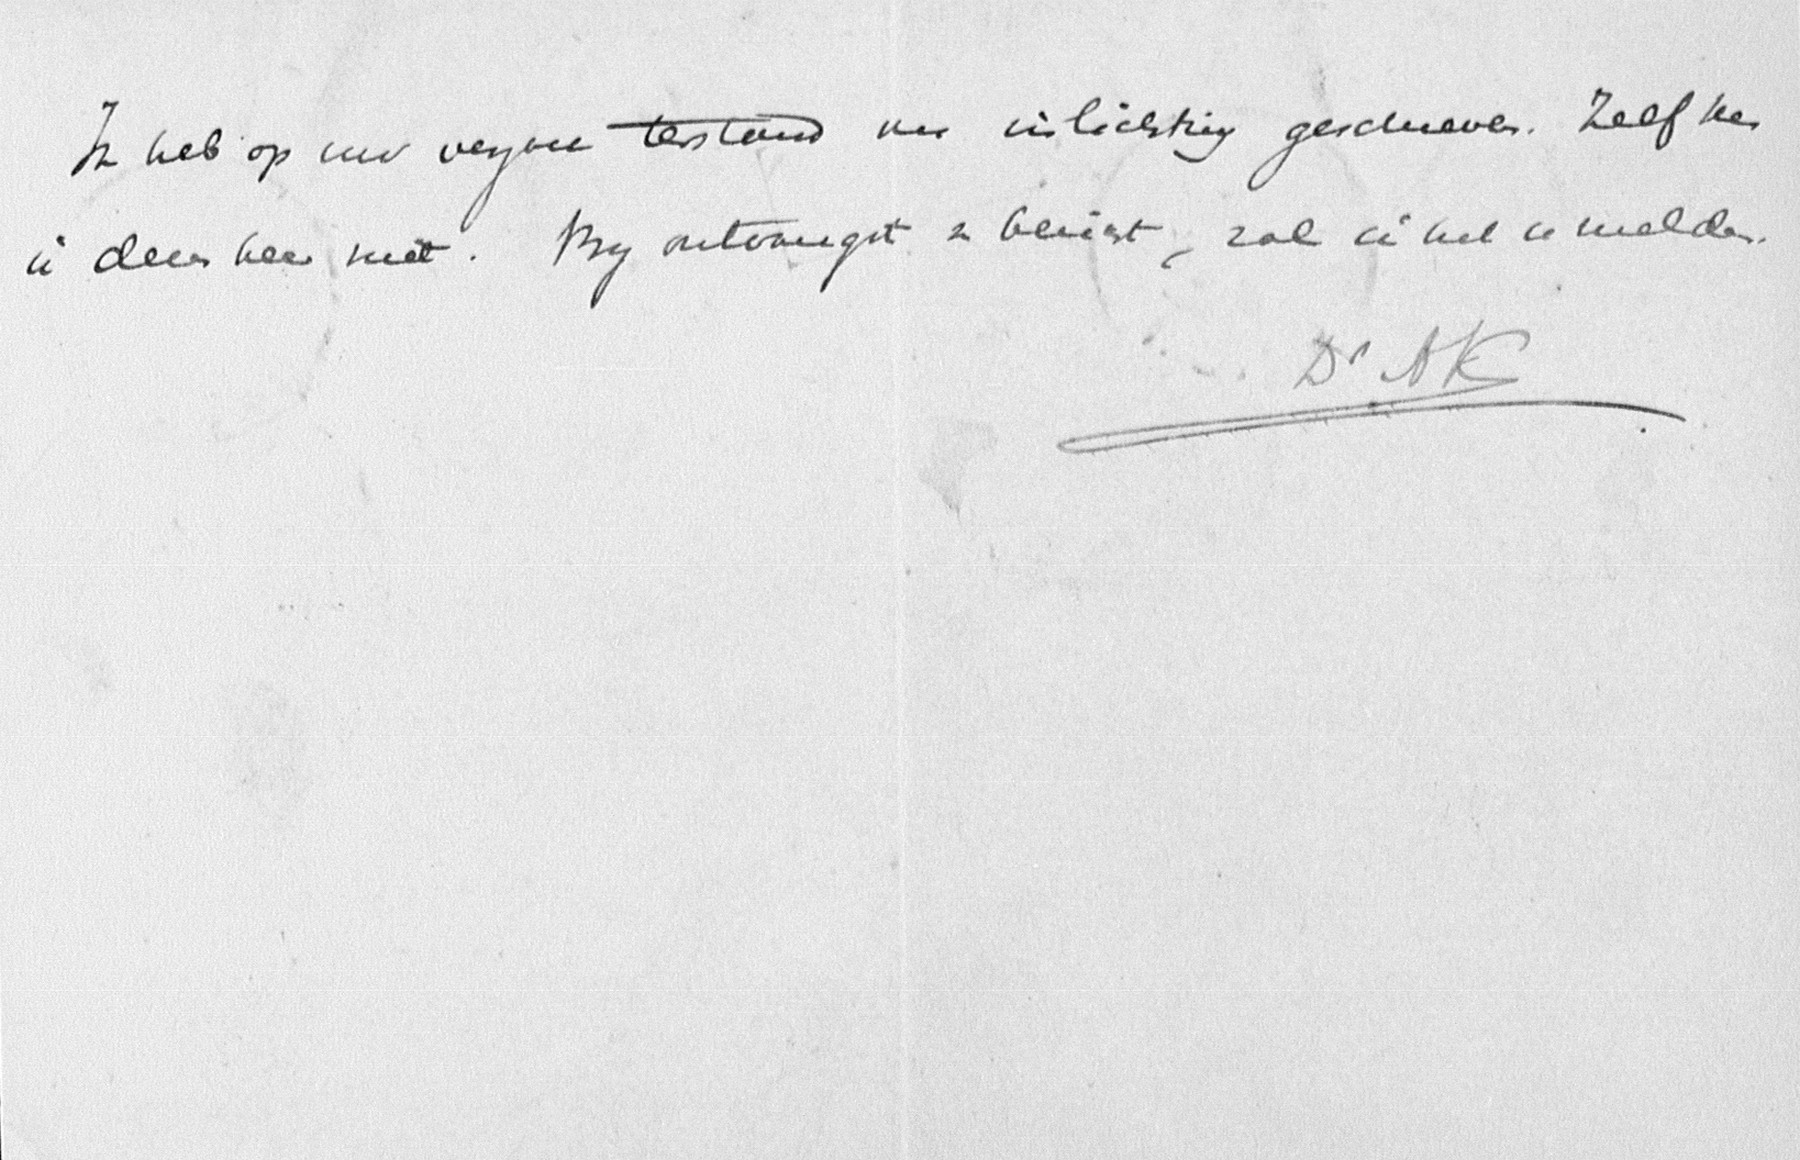 Ik heb op uw verzoek terstond om inlichting geschreven. Zelf ken
ik deen heer niet. Bij ontvangst v bericht, zal ik het u melden.
Dr AK